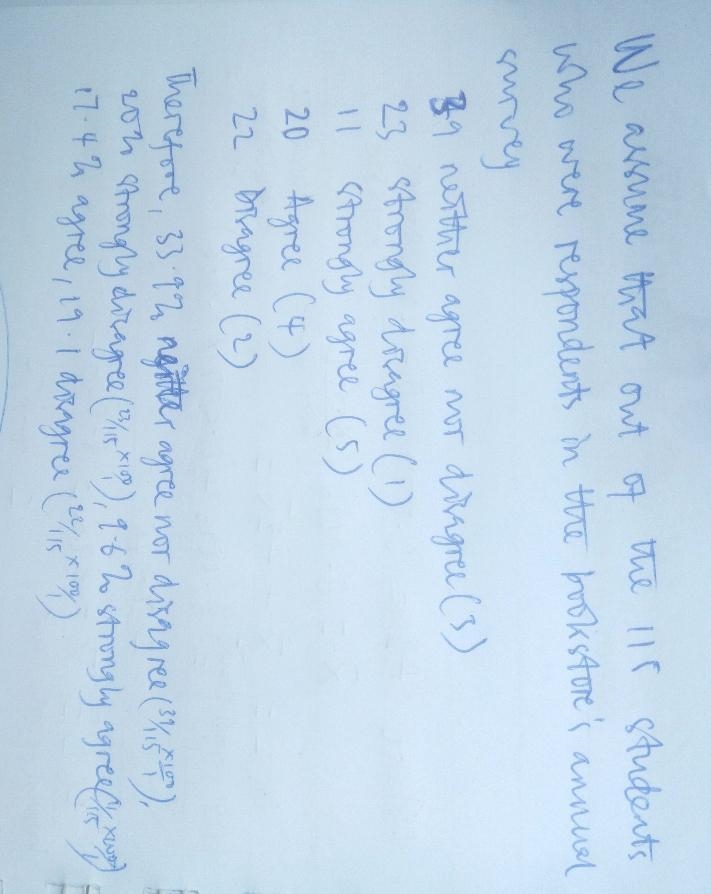 We assume that out of the 115 students
who were respondents in the bookstore's annual
survey
39 neither agree nor disagree (3)
23 strongly disagree (1)
11 strongly agree (5)
20 Agree (4)
22 Disagree (2)
Therefore, 33.9% neither agree nor disagree (39/115 × 100/1),
20% strongly disagree (23/115 × 100/1), 9.6% strongly agree (11/115 × 100/1)
17.4% agree, 19.1 disagree (22/115 × 100/1)